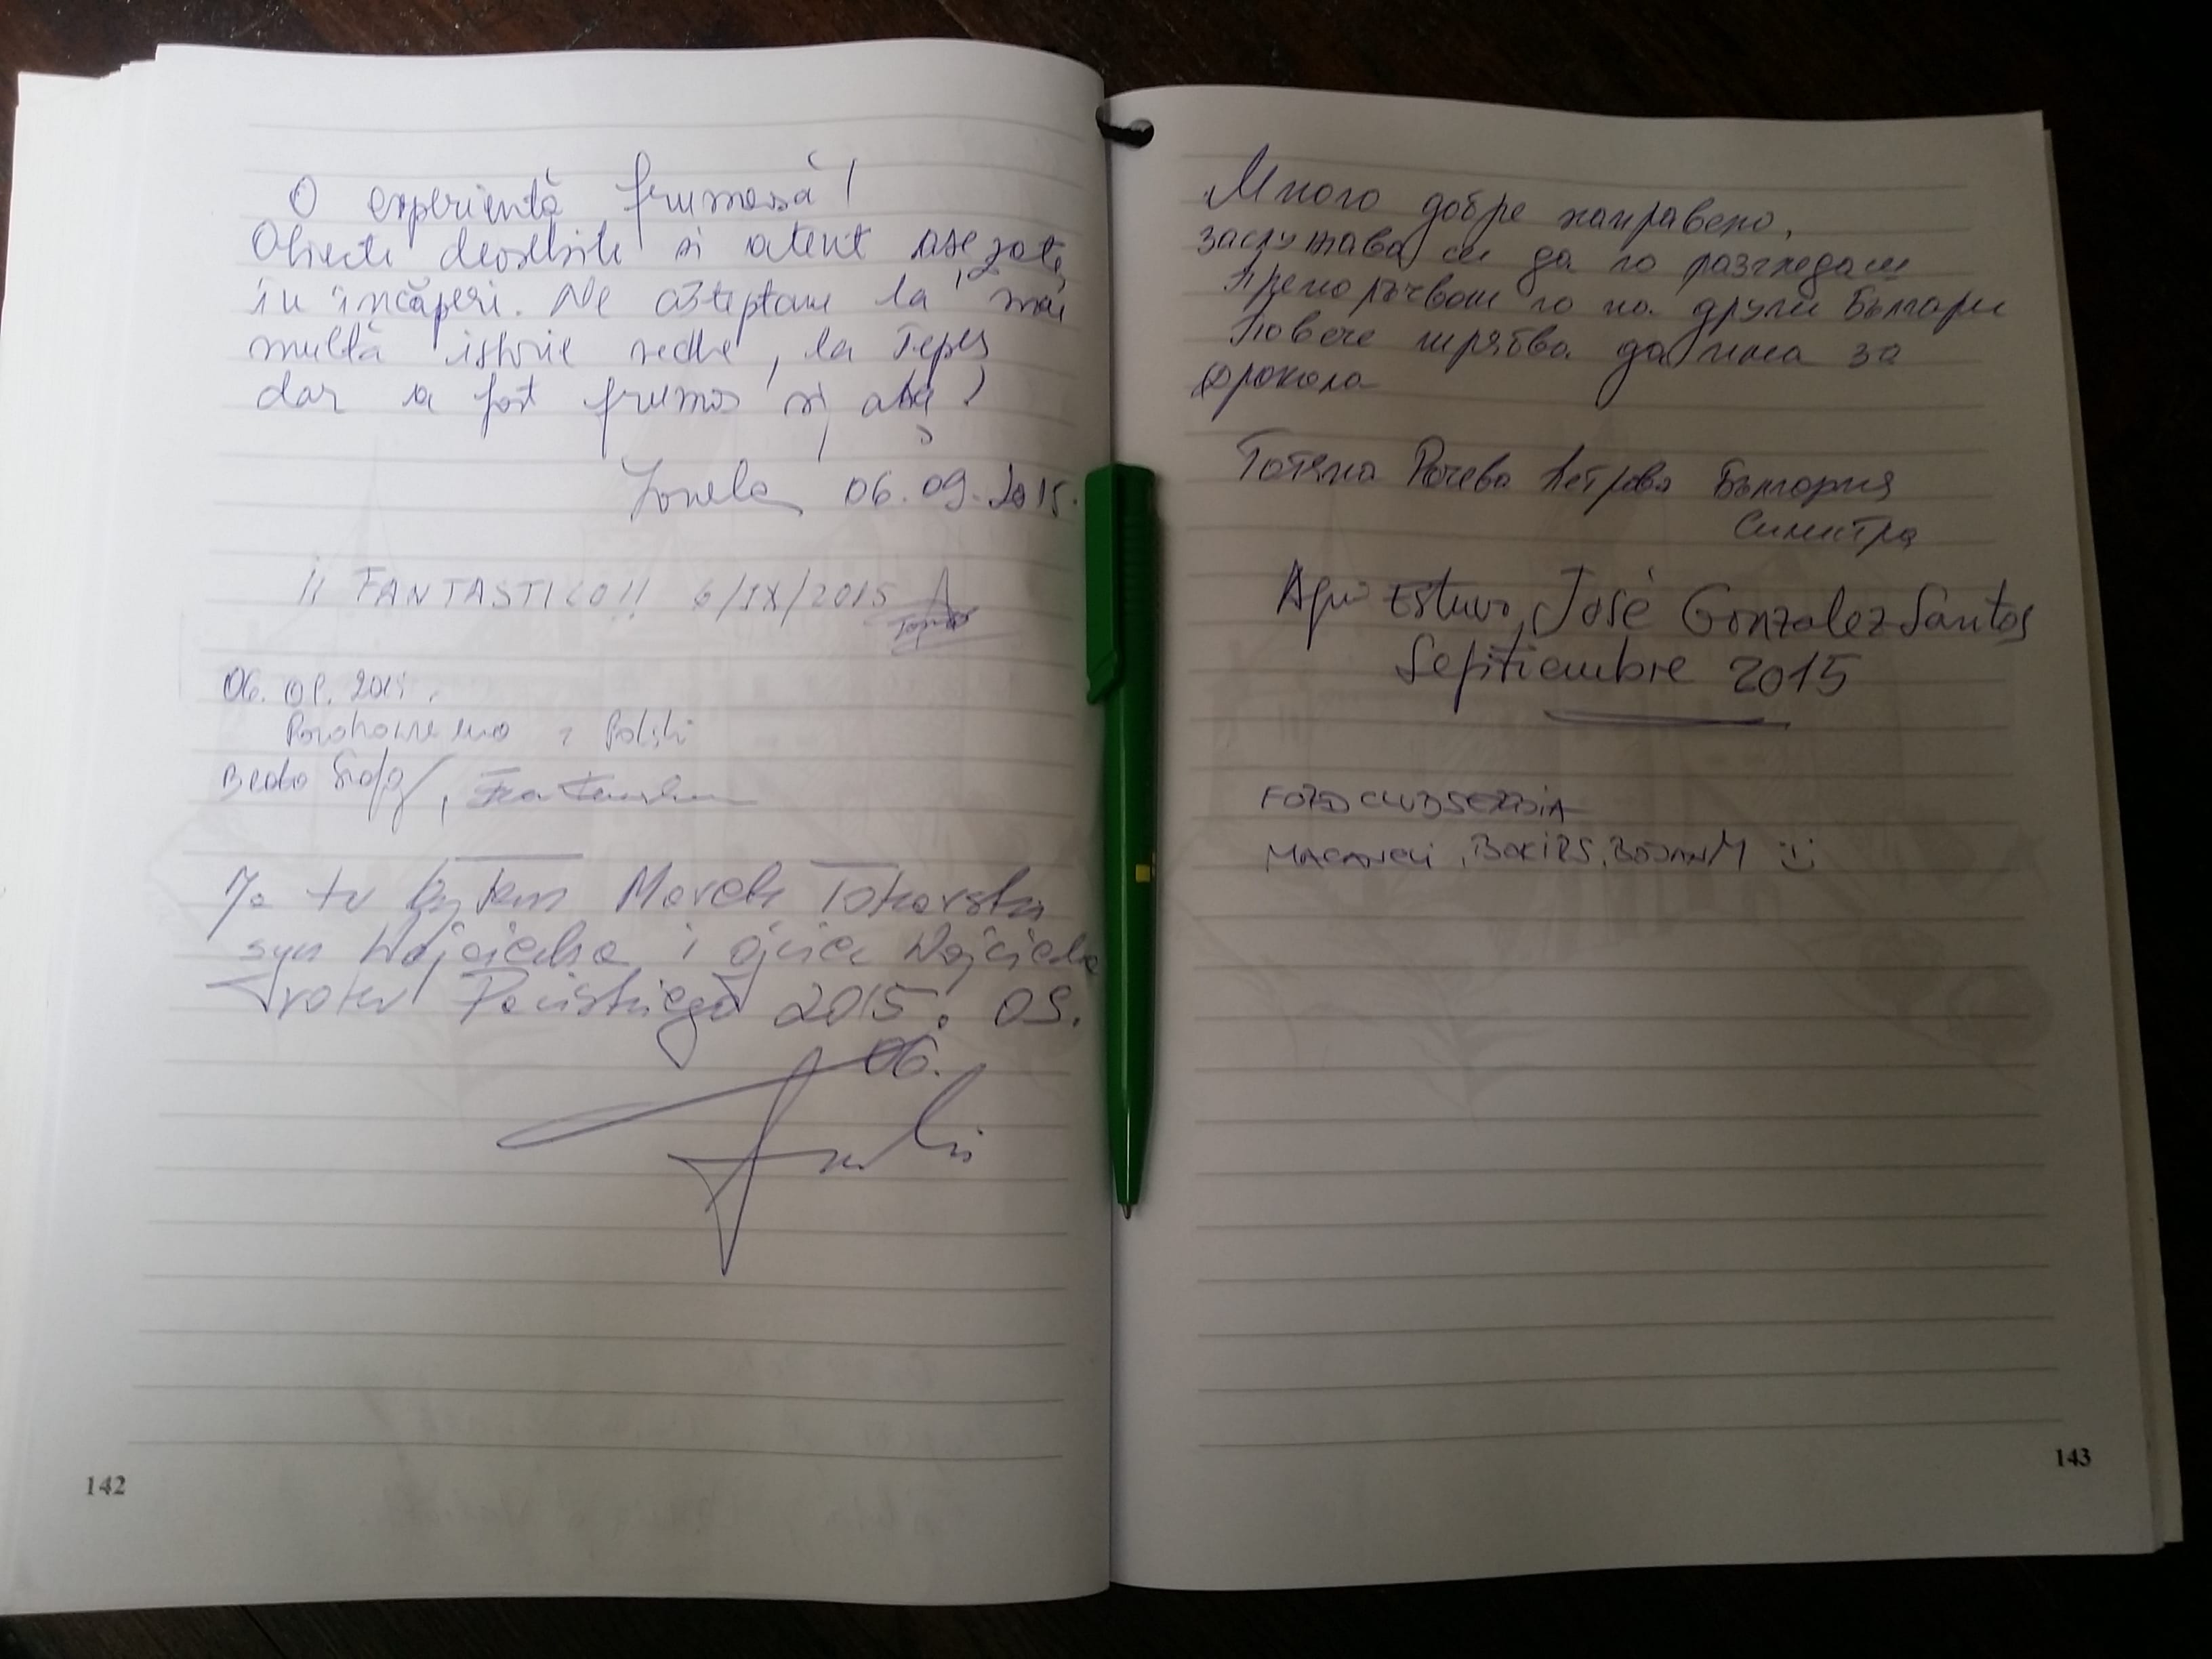 O experiență frumosă!
Obiecte deosebite și atent așezate
în încăperi. Ne așteptam la mai
multă istorie veche, la Țepeș
dar a fost frumos și așa!
Ionela 06.09.2015.
¡¡ FANTASTICO!! 6/IX/2015
06. 2015.
z Polski
Beata
Ja tu byłem Marek Tokarski
syn Wojciecha i ojciec Wojciecha
2015. 09.
06.
142
Много добре направено,
заслужава си да го разгледаш
Препоръчвам го на други Българи
Повече трябва да има за
Дракола
Татяна Рачева Петрова България
Силистра
Aqui Estuvo, José Gonzalez Santos
Septiembre 2015
FOTO CLUB SERBIA
BOKIRS, BOJAN M
143